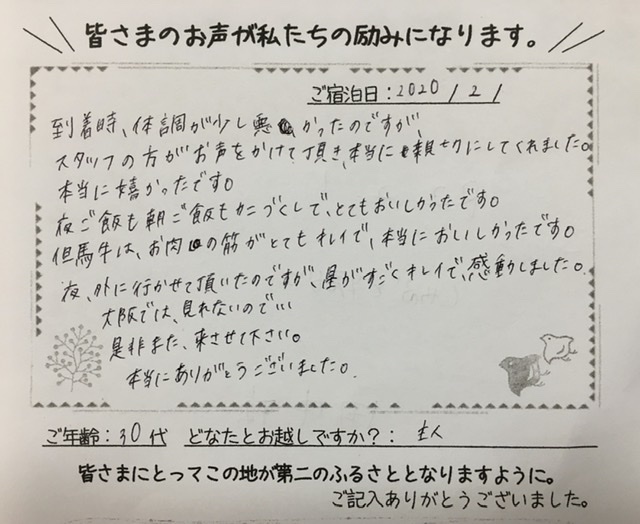 皆さまのお声が私たちの励みになります。
ご宿泊日：2020/2/
到着時、体調が少し悪かったのですが、
スタッフの方がお声をかけて頂き、本当に親切にしてくれました。
本当に嬉かったです。
夜ご飯も朝ご飯もかにづくしで、とてもおいしかったです。
但馬牛は、お肉の筋がとてもキレイで、本当においしかったです。
夜、外に行かせて頂いたのですが、星がすごくキレイで、感動しました。
大阪では、見れないので…
是非また、来させて下さい。
本当にありがとうございました。
ご年齢：30代 どなたとお越しですか？：主人
皆さまにとってこの地が第二のふるさととなりますように。
ご記入ありがとうございました。